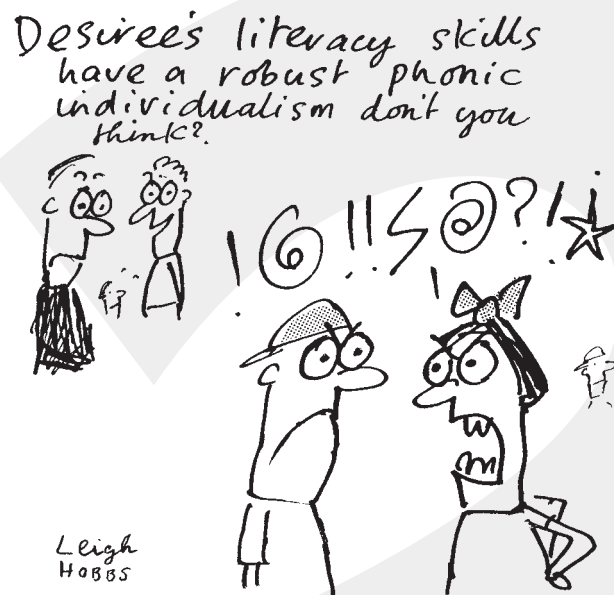 Desiree's literacy skills
have a robust phonic
individualism don't you
think?.
! @ !! ϟ @ ? ! ! ☆
Leigh
HOBBS